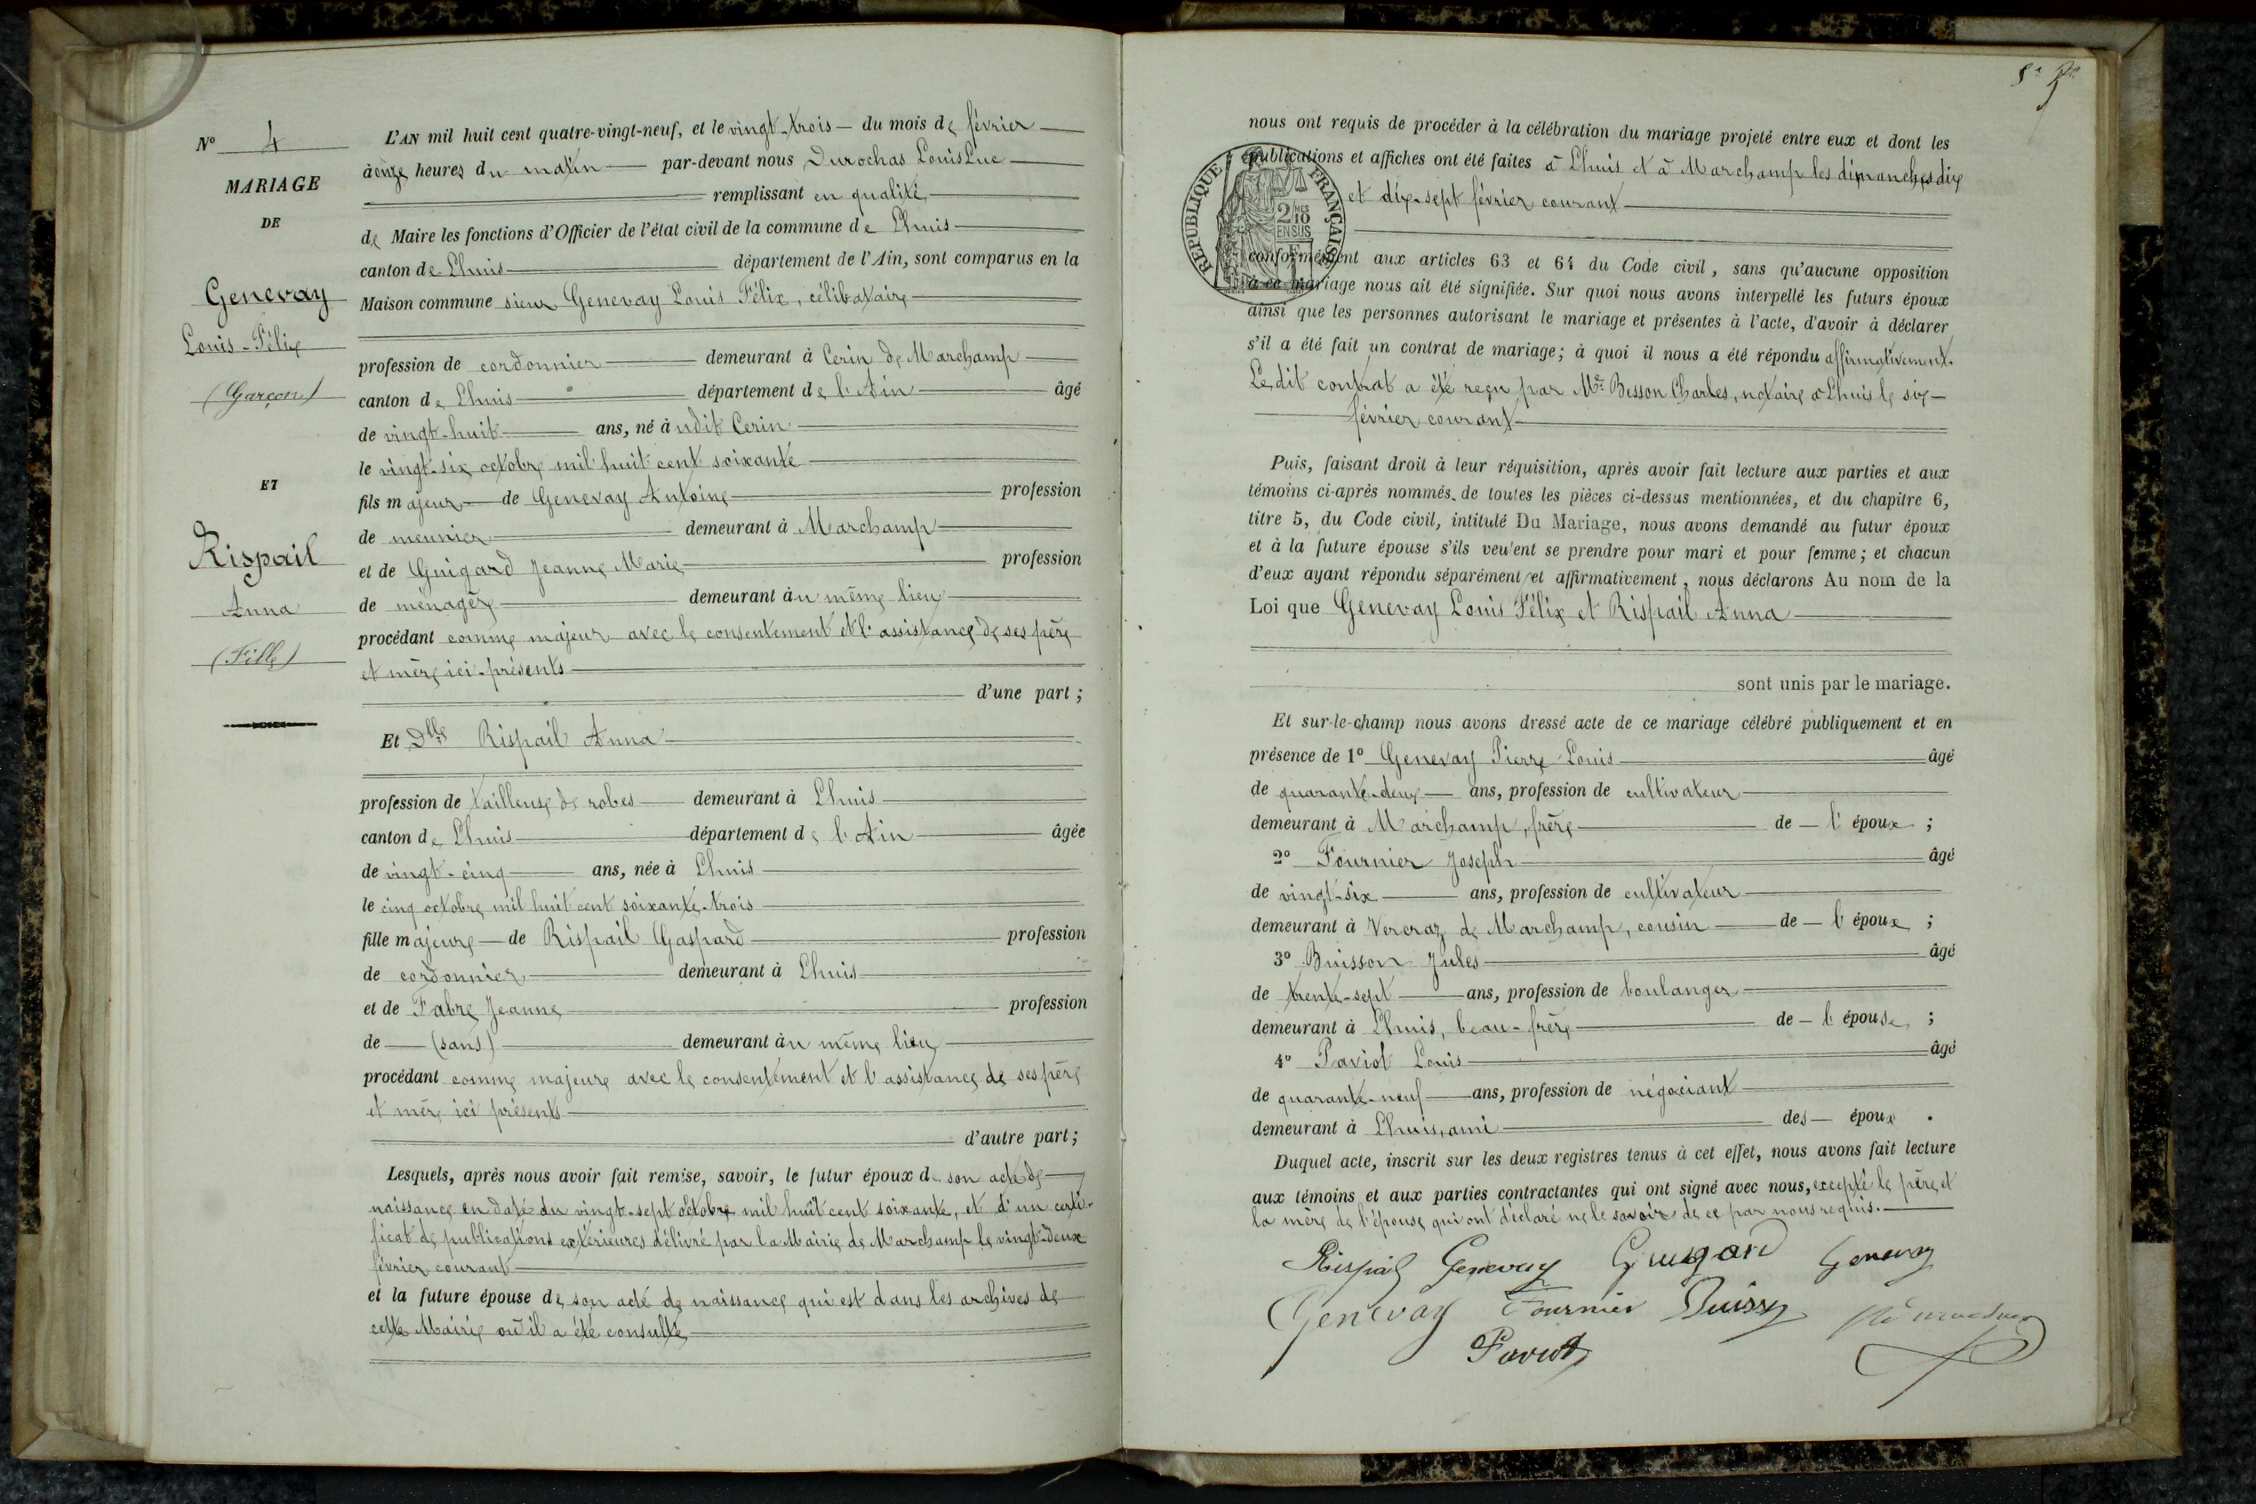 N° 4
MARIAGE
DE
Genevay
Louis-Félix
(Garçon)
ET
Rispail
Anna
(Fille)
L'AN mil huit cent quatre-vingt-neuf, et le vingt-trois du mois de février
à onze heures du matin par-devant nous Durochas Louis Luc
remplissant en qualité
de Maire les fonctions d'Officier de l'état civil de la commune de Lhuis
canton de Lhuis département de l'Ain, sont comparus en la
Maison commune sieur Genevay Louis Félix, célibataire
profession de cordonnier demeurant à Cerin de Marchamp
canton de Lhuis département de l'Ain âgé
de vingt-huit ans, né à udit Cerin
le vingt-six octobre mil huit cent soixante
fils majeur de Genevay Antoine profession
de meunier demeurant à Marchamp
et de Guigard Jeanne Marie profession
de ménagère demeurant àu même lieu
procédant comme majeur avec le consentement et l'assistance de ses père
et mère ici présents
d'une part ;
Et Dlle Rispail Anna
profession de tailleuse de robes demeurant à Lhuis
canton de Lhuis département de l'Ain âgée
de vingt-cinq ans, née à Lhuis
le cinq octobre mil huit cent soixante-trois
fille majeure de Rispail Gaspard profession
de cordonnier demeurant à Lhuis
et de Fabre Jeanne profession
de (sans) demeurant àu même lieu
procédant comme majeure avec le consentement et l'assistance de ses père
et mère ici présents
d'autre part ;
Lesquels, après nous avoir fait remise, savoir, le futur époux de son acte de
naissance en date du vingt-sept octobre mil huit cent soixante, et d'un certi-
ficat de publications extérieures délivré par la Mairie de Marchamp le vingt-deux
février courant
et la future épouse de son acte de naissance qui est dans les archives de
cette Mairie où il a été consulté
nous ont requis de procéder à la célébration du mariage projeté entre eux et dont les
publications et affiches ont été faites à Lhuis et à Marchamp les dimanches dix
et dix-sept février courant
RÉPUBLIQUE FRANÇAISE
2 MES 10
EN SUS
conformément aux articles 63 et 64 du Code civil, sans qu'aucune opposition
à ce mariage nous ait été signifiée. Sur quoi nous avons interpellé les futurs époux
ainsi que les personnes autorisant le mariage et présentes à l'acte, d'avoir à déclarer
s'il a été fait un contrat de mariage ; à quoi il nous a été répondu affirmativement.
Ledit contrat a été reçu par Me Besson Charles, notaire à Lhuis le six
février courant
Puis, faisant droit à leur réquisition, après avoir fait lecture aux parties et aux
témoins ci-après nommés, de toutes les pièces ci-dessus mentionnées, et du chapitre 6,
titre 5, du Code civil, intitulé Du Mariage, nous avons demandé au futur époux
et à la future épouse s'ils veulent se prendre pour mari et pour femme ; et chacun
d'eux ayant répondu séparément et affirmativement, nous déclarons Au nom de la
Loi que Genevay Louis Félix et Rispail Anna
sont unis par le mariage.
Et sur-le-champ nous avons dressé acte de ce mariage célébré publiquement et en
présence de 1° Genevay Pierre Louis âgé
de quarante-deux ans, profession de cultivateur
demeurant à Marchamp, frère de l'époux ;
2° Fournier Joseph âgé
de vingt-six ans, profession de cultivateur
demeurant à Vercraz de Marchamp, cousin de l'époux ;
3° Buisson Jules âgé
de trente-sept ans, profession de boulanger
demeurant à Lhuis, beau-frère de l'épouse ;
4° Paviot Louis âgé
de quarante-neuf ans, profession de négociant
demeurant à Lhuis, ami des époux .
Duquel acte, inscrit sur les deux registres tenus à cet effet, nous avons fait lecture
aux témoins et aux parties contractantes qui ont signé avec nous, excepté le père et
la mère de l'épouse qui ont déclaré ne le savoir de ce par nous requis.
Rispail Genevay Guigard Genevay
Genevay Fournier Buisson
Paviot